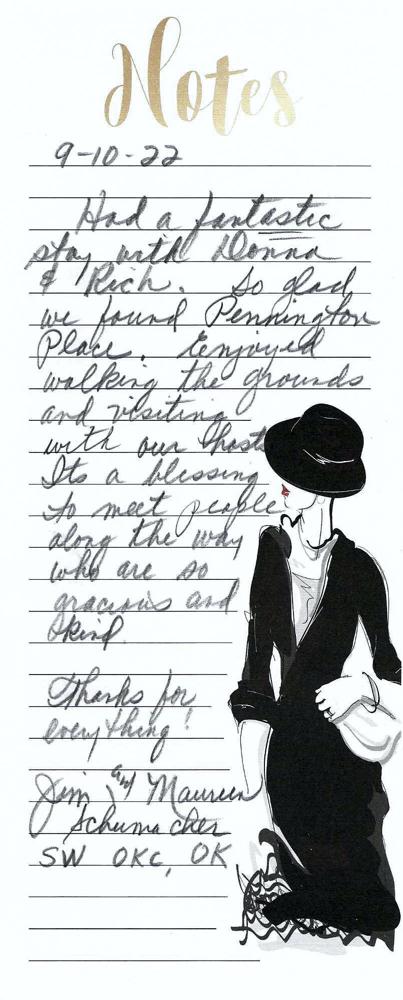 Notes
9-10-22
Had a fantastic
stay with Donna
& Rich. So glad
we found Pennington
Place. Enjoyed
walking the grounds
and visiting
with our hosts
Its a blessing
to meet people
along the way
who are so
gracious and
kind.
Thanks for
everything!
Jim and Maureen
Schumacher
SW OKC, OK